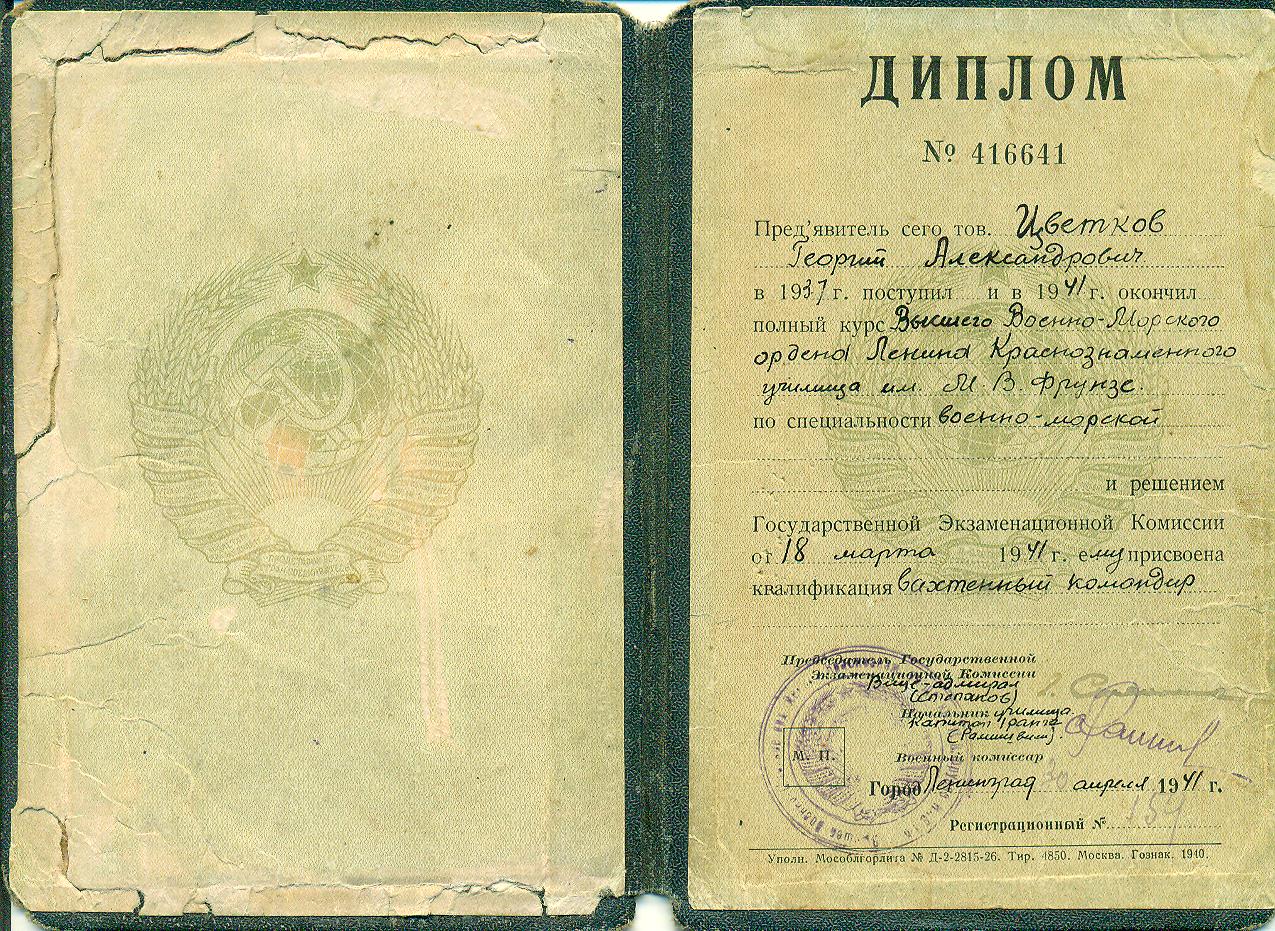 ДИПЛОМ
№ 416641
Пред'явитель сего тов. Цветков
Георгий Александрович
в 1937 г. поступил и в 1941 г. окончил
полный курс Высшего Военно-Морского
ордена Ленина Краснознаменного
училища им. М. В. Фрунзе.
по специальности военно-морской
и решением
Государственной Экзаменационной Комиссии
от 18 марта 1941 г. ему присвоена
квалификация вахтенный командир
Председатель Государственной
Экзаменационной Комиссии
Вице-адмирал
(Степанов)
Начальник училища
капитан 1 ранга
(Рамишвили).
М. П.
Военный комиссар
Город Ленинград 30 апреля 1941 г.
Регистрационный №
Уполн. Мособлгорлита № Д-2-2815-26. Тир. 4850. Москва. Гознак. 1940.